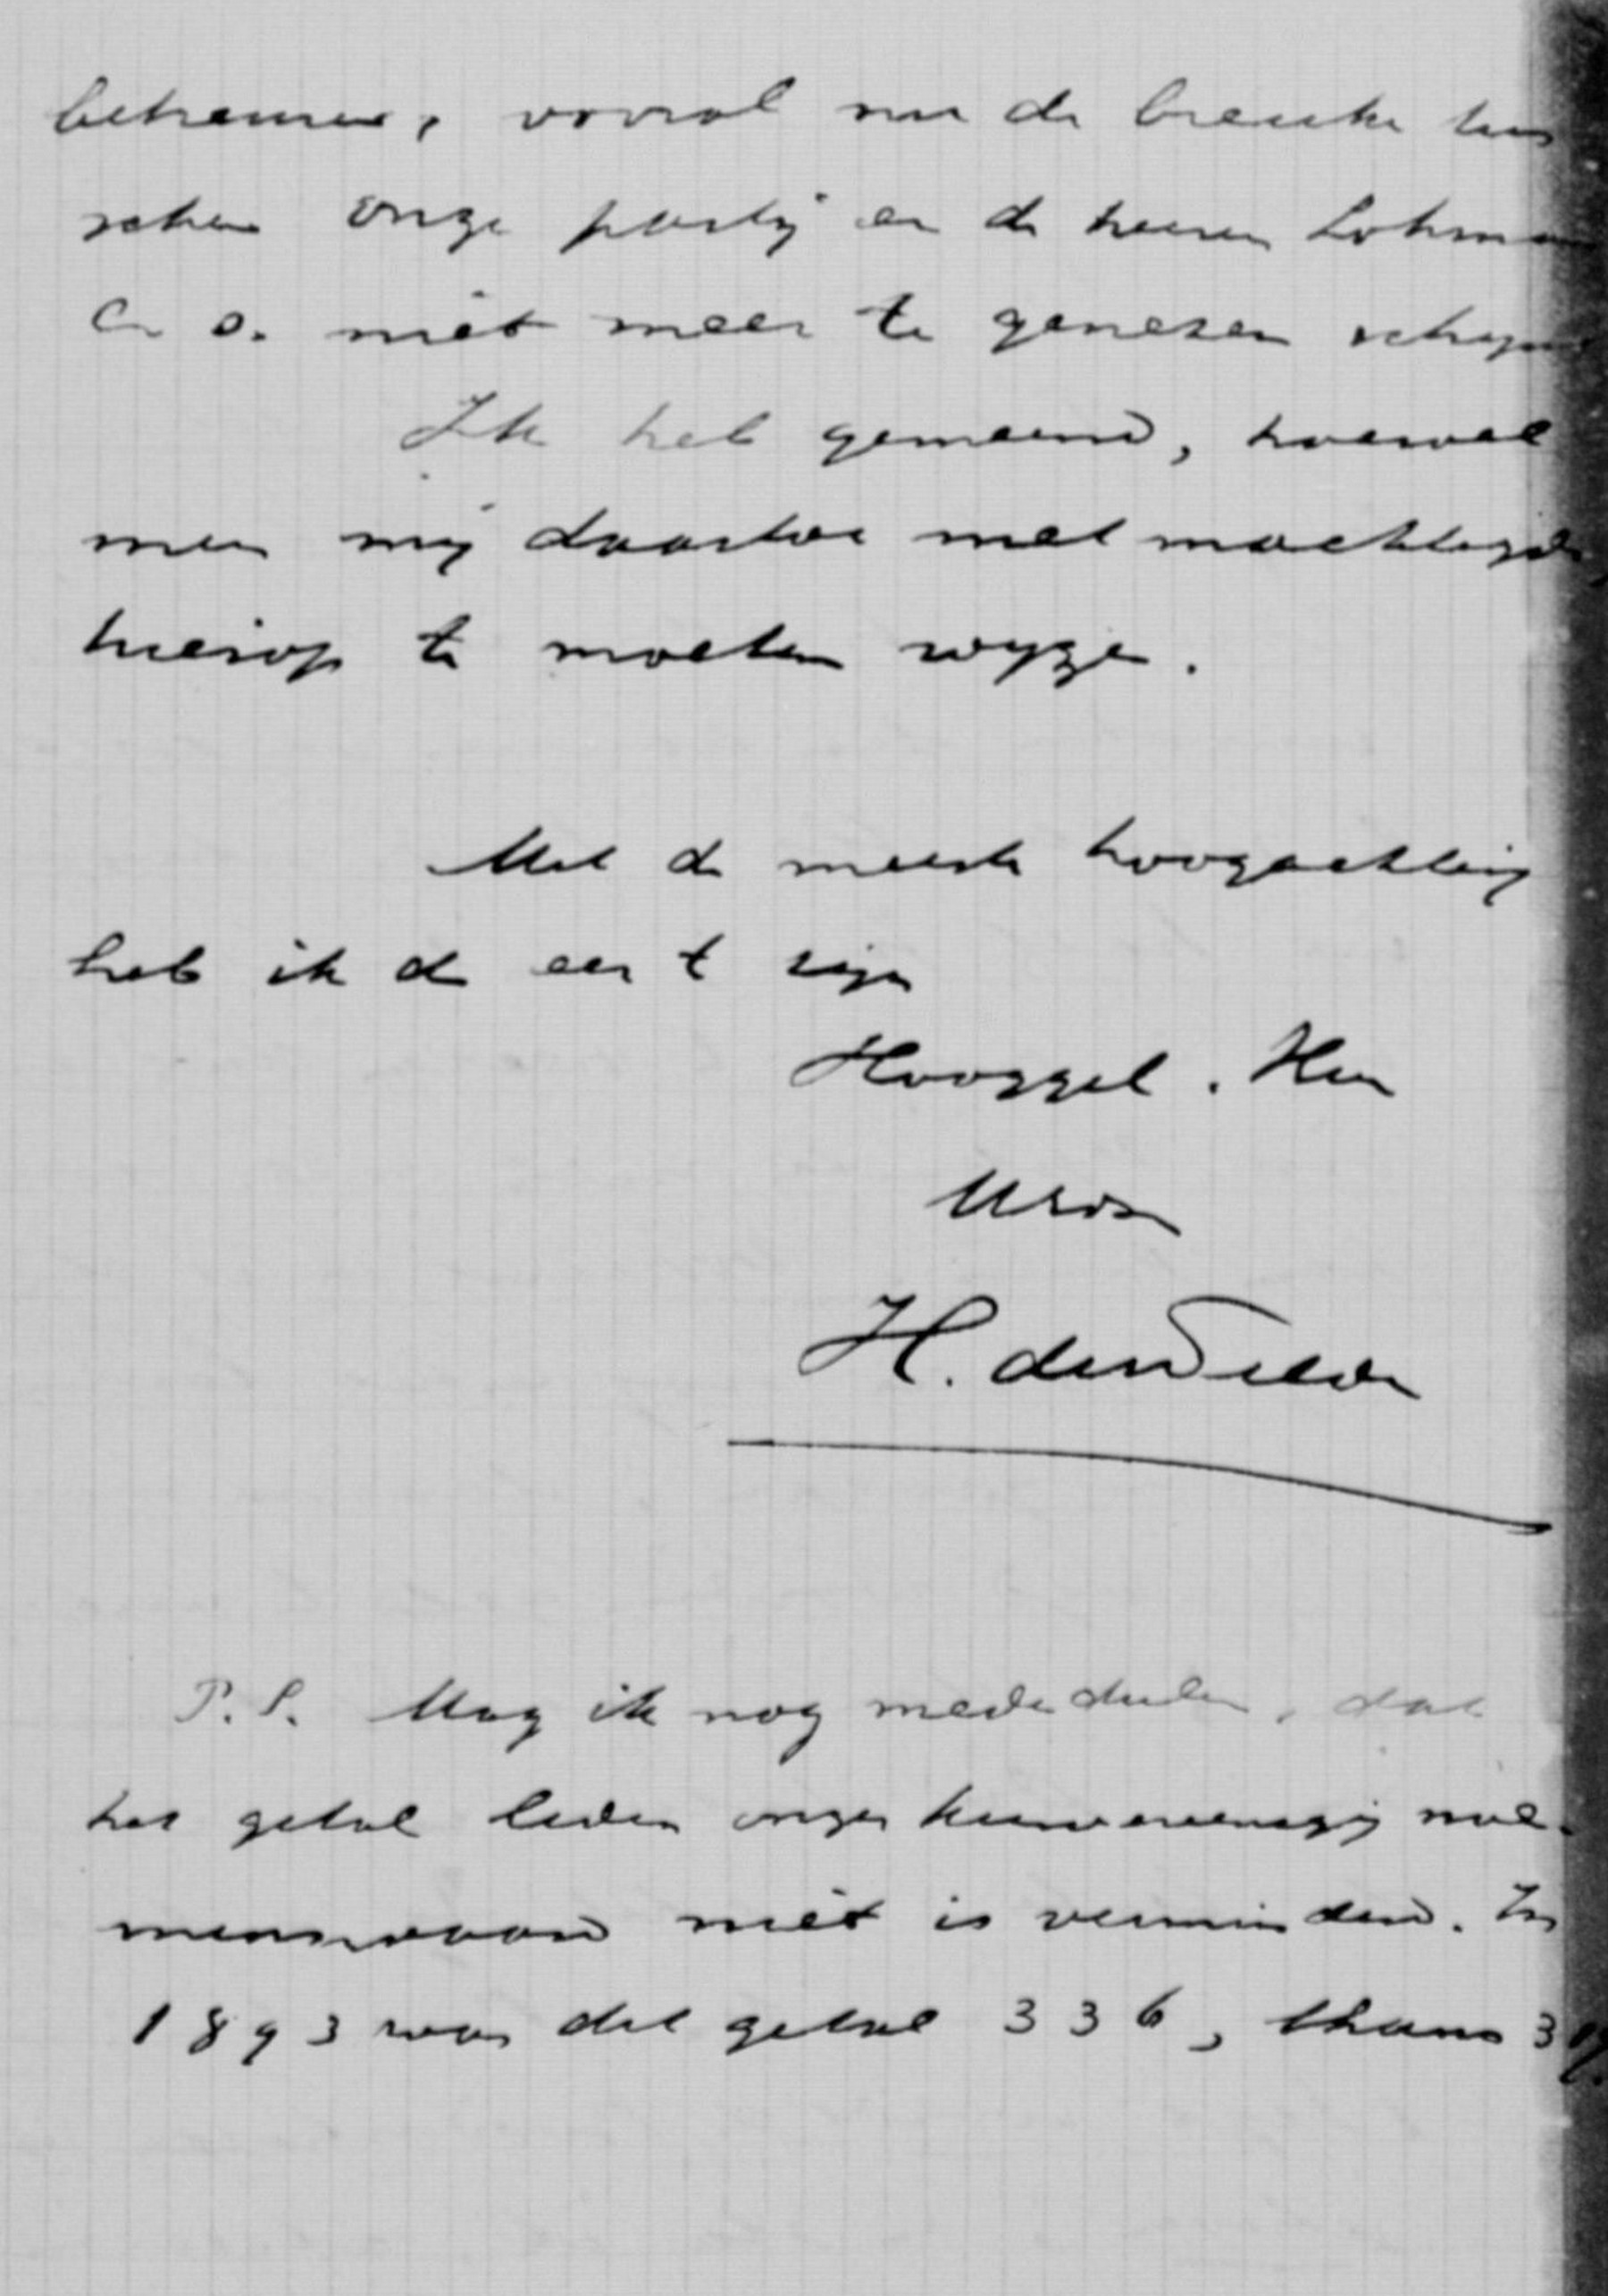 betreuren, vooral nu de breuke tus
schen onze partij en de heeren Lohman
c. s. niet meer te genezen schijnt
Ik heb gemeend, hoewel
men mij daartoe niet machtigde,
hierop te moeten wijzen.
Met de meeste hoogachting
heb ik de eer te zijn
Hooggel. Heer
Uwen
H. de Wilde
P.S. Mag ik nog mededeelen, dat
het getal leden onzer kiesvereeniging noe-
menswaard niet is verminderd. In
1893 was dat getal 336, thans